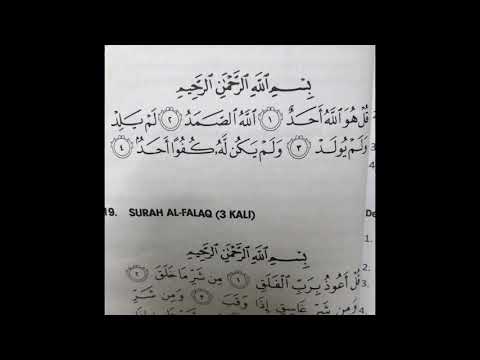 بِسْمِ اللَّهِ الرَّحْمَٰنِ الرَّحِيمِ
قُلْ هُوَ اللَّهُ أَحَدٌ ١ اللَّهُ الصَّمَدُ ٢ لَمْ يَلِدْ
وَلَمْ يُولَدْ ٣ وَلَمْ يَكُن لَّهُ كُفُوًا أَحَدٌ ٤
3.
4
19. SURAH AL-FALAQ (3 KALI)
De
1.
بِسْمِ اللَّهِ الرَّحْمَٰنِ الرَّحِيمِ
2.
قُلْ أَعُوذُ بِرَبِّ الْفَلَقِ ١ مِن شَرِّ مَا خَلَقَ ٢
3.
وَمِن شَرِّ غَاسِقٍ إِذَا وَقَبَ ٣ وَمِن شَرِّ
4.